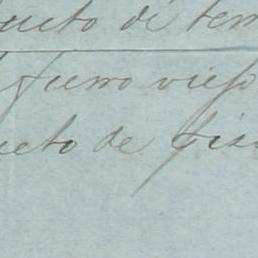 ueto de tem
fierro viejo
ueto de